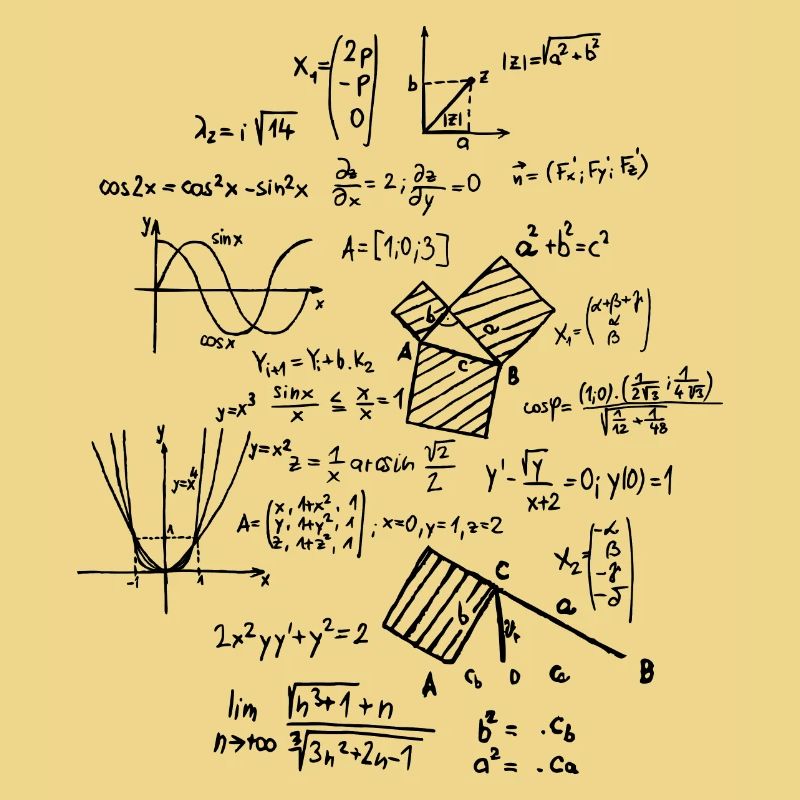 X₁=(2p -p 0)
b
z
|z|
a
|z|=√a²+b²
λ₂=i√14
cos2x=cos²x-sin²x
∂z/∂x=2; ∂z/∂y=0
n⃗=(Fx'; Fy'; Fz')
y
sinx
cosx
x
A=[1;0;3]
a²+b²=c²
b
a
c
A
B
X₁=(α+β+γ α β)
Yᵢ₊₁=Yᵢ+b.K₂
y=x³
sinx/x ≤ x/x=1
cosφ=(1;0).(1/2√3; 1/4√3)/√1/12+1/48
y
y=x²
y=x⁴
1
-1
1
x
z=1/x arcsin √2/2
y'-√y/x+2=0; y(0)=1
A=(x, 1+x², 1
y, 1+y², 1
z, 1+z², 1); x=0,y=1,z=2
X₂=(-α β -γ -δ)
C
b
a
A
c_b
D
c_a
B
2x²yy'+y²=2
lim n→+∞ √n³+1+n/∛3n²+2n-1
b²= .c_b
a²= .c_a